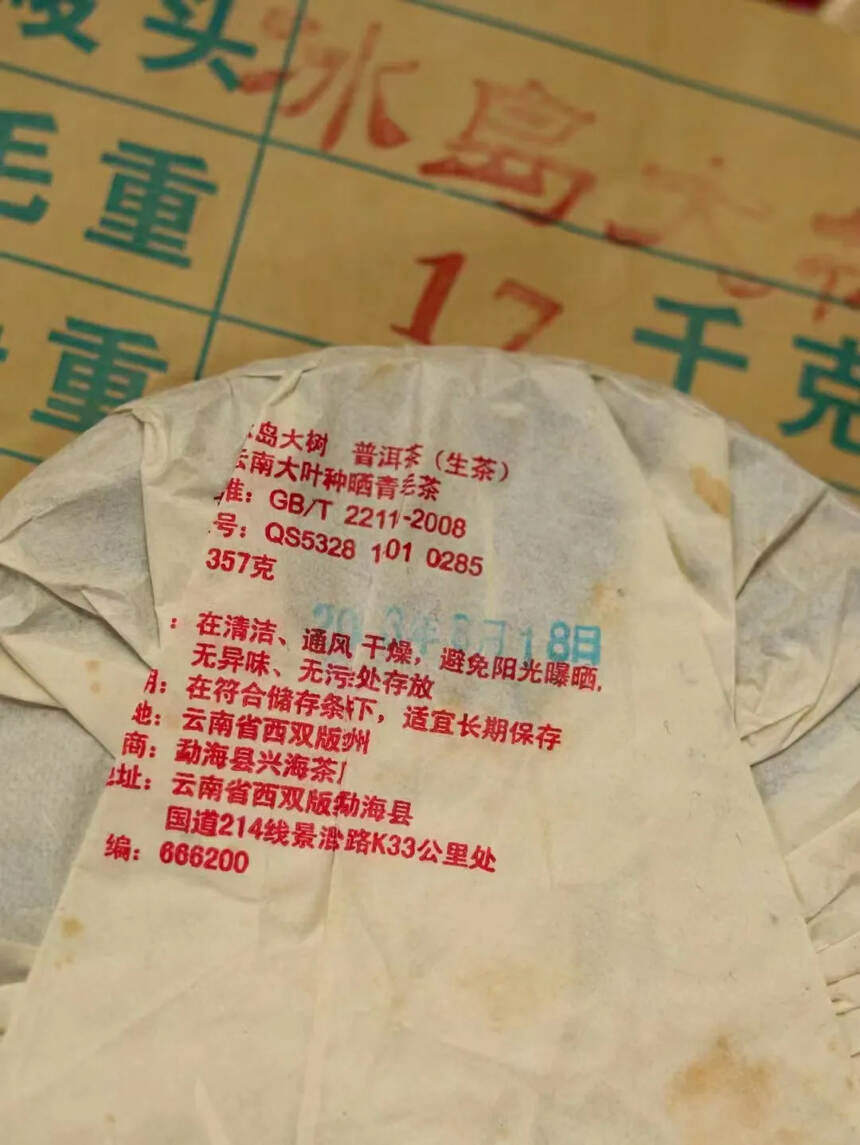 头 冰岛大
毛重 17千克
重
岛大树 普洱茶（生茶）
云南大叶种晒青毛茶
准：GB/T 2211-2008
号：QS5328 101 0285
357克
：在清洁、通风 干燥，避免阳光曝晒，
无异味、无污处存放
月18日
期：在符合储存条下，适宜长期保存
地：云南省西双版州
商：勐海县兴海茶
址：云南省西双版勐海县
国道214线景路K33公里处
编：666200